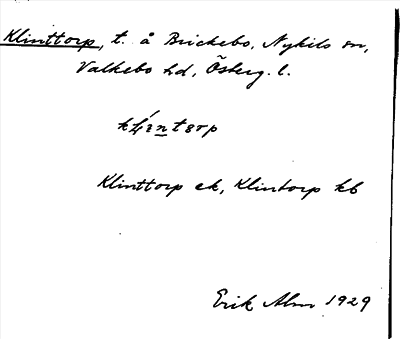 Klinttorp, t. å Brickebo, Nykils sn,
Valkebo hd, Österg. l.
Klinttorp ek, Klintorp kb
Erik Alm 1929